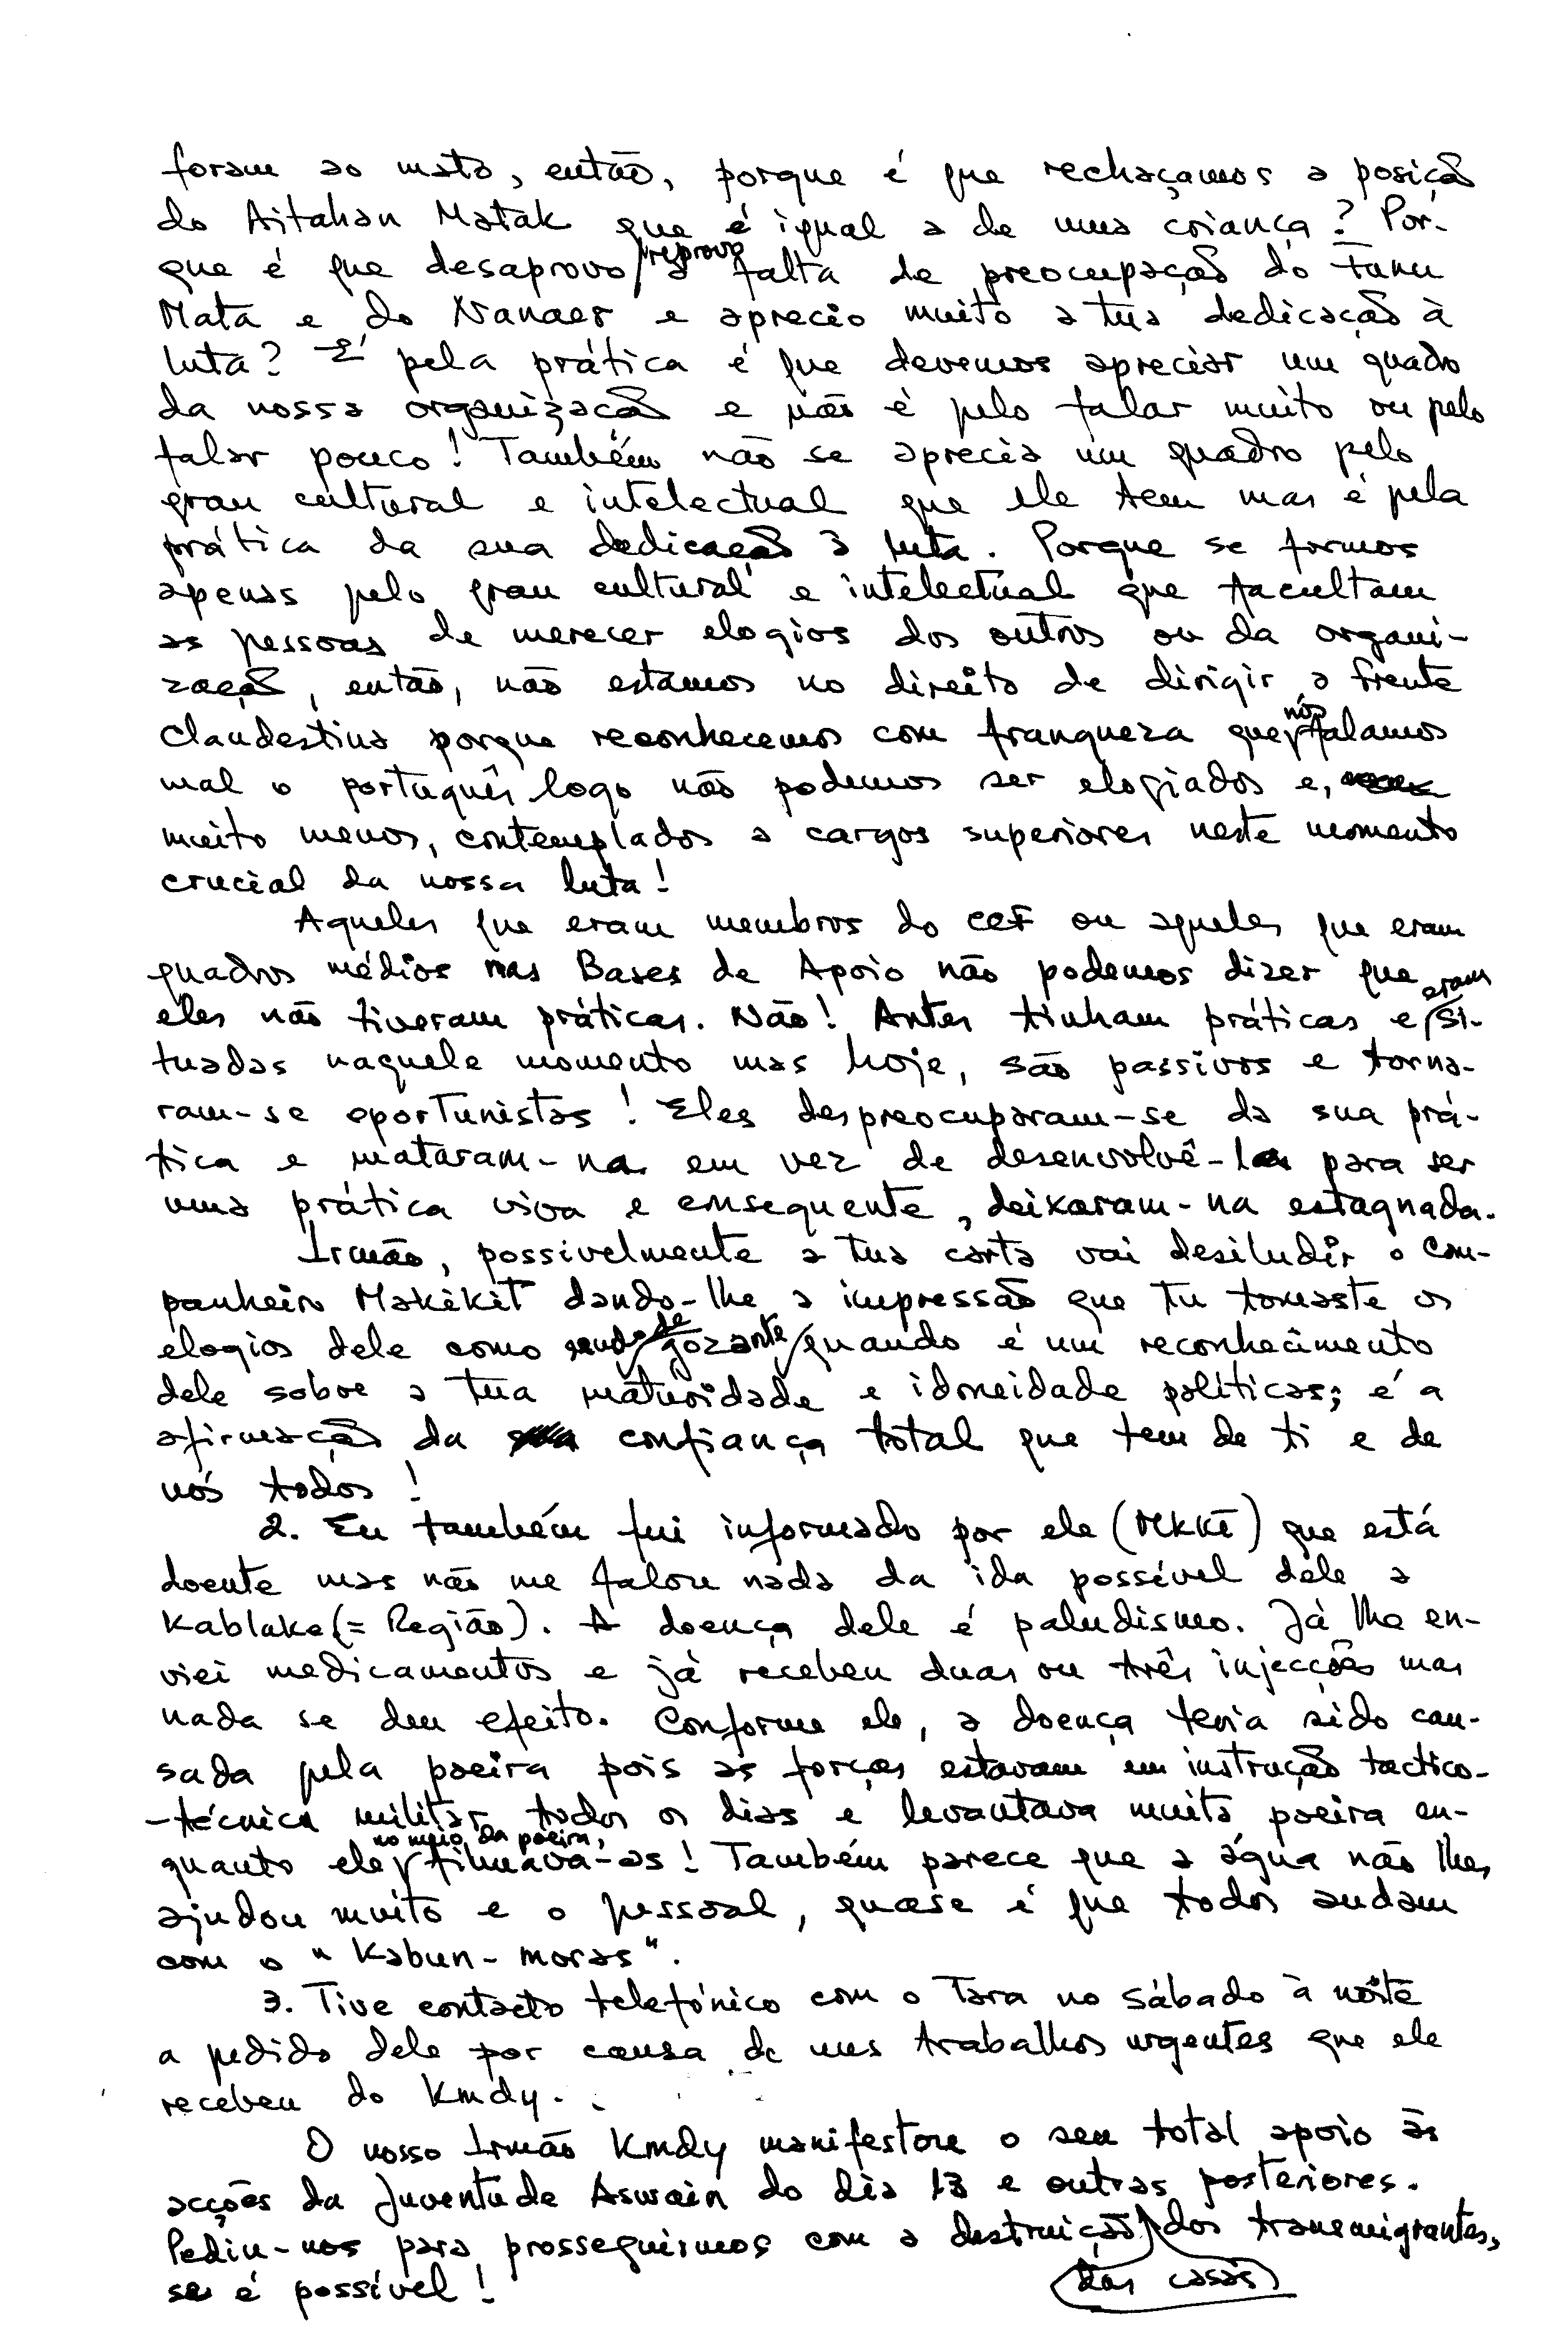 foram ao mato, então, porque é que rechaçamos a posição
do Aitahan Matak que é igual a de uma criança? Por-
que é que desaprovo/reprovo a falta de preocupação do Fanu
Mata e do Nanaer e aprecio muito a tua dedicação à
luta? É pela prática é que devemos apreciar um quado
da nossa organização e não é pelo falar muito ou pelo
falar pouco! Também não se aprecia um quadro pelo
grau cultural e intelectual que ele tem mas é pela
prática da sua dedicação à luta. Porque se formos
apenas pelo grau cultural e intelectual que facultam
as pessoas de merecer elogios dos outros ou da organi-
zação, então, não estamos no direito de dirigir a frente
clandestina porque reconhecemos com franqueza que nós falamos
mal o português logo não podemos ser elogiados e,
muito menos, contemplados a cargos superiores neste momento
crucial da nossa luta!
Aqueles que eram membros do CCF ou aqueles que eram
quadros médios nas Bases de Apoio não podemos dizer que
eles não tiveram práticas. Não! Antes tinham práticas e eram si-
tuadas naquele momento mas hoje, são passivos e torna-
ram-se oportunistas! Eles despreocuparam-se da sua prá-
tica e mataram-na em vez de desenvolvê-la para ser
uma prática viva e consequente, deixaram-na estagnada.
Irmão, possivelmente a tua carta vai desiludir o com-
panheiro Makikit dando-lhe a impressão que tu tomaste os
elogios dele como sendo de gozante quando é um reconhecimento
dele sobre a tua maturidade e idoneidade políticas; é a
afirmação da confiança total que tem de ti e de
nós todos!
2. Eu também fui informado por ele (MKKT) que está
doente mas não me falou nada da ida possível dele a
Kablake (= Região). A doença dele é paludismo. Já lhe en-
viei medicamentos e já recebeu duas ou três injecções mas
nada se deu efeito. Conforme ele, a doença teria sido cau-
sada pela poeira pois as forças estavam em instrução tactico-
-técnica militar todos os dias e levantava muita poeira en-
quanto ele, no meio da poeira, filmava-as! Também parece que a água não lhes
ajudou muito e o pessoal, quase é que todos andam
com o "Kabun-moras".
3. Tive contacto telefónico com o Tara no sábado à noite
a pedido dele por causa de uns trabalhos urgentes que ele
recebeu do Kmdy.
O nosso Irmão Kmdy manifestou o seu total apoio às
acções da Juventude Aswain do dia 13 e outras posteriores.
Pediu-nos para prosseguirmos com a destruição das casas dos transmigrantes,
se é possível!